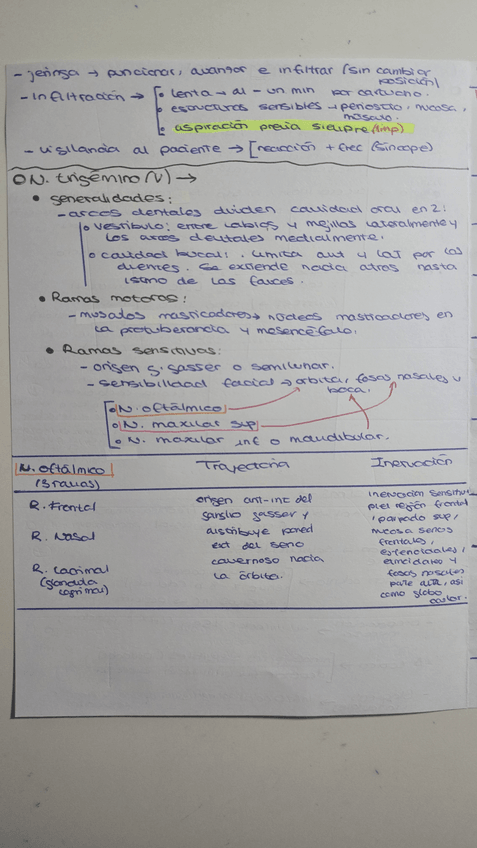 - jeringa → puncionar, avanzar e infiltrar (sin cambiar
posición)
- Infiltración → • lenta → al - un min por cartucho.
• estructuras sensibles → periostio, mucosa,
músculo.
• aspiración previa siempre (Imp)
- vigilancia al paciente → [reacción + frec (síncope)
N. trigémino (V) →
• generalidades:
- arcos dentales dividen cavidad oral en 2:
• vestíbulo: entre labios y mejillas lateralmente y
los arcos dentales medialmente.
• cavidad bucal: limita ant y lat por los
dientes. Se extiende hacia atrás hasta
istmo de las fauces.
• Ramas motoras:
- músculos masticadores → núcleos masticadores en
la protuberancia y mesencéfalo.
• Ramas sensitivas:
- origen g. gasser o semilunar.
- sensibilidad facial → órbita, fosas nasales y
boca.
• N. oftálmico
• N. maxilar sup
• N. maxilar inf o mandibular.
N. oftálmico Trayectoria Inervación
(3 ramas)
R. Frontal
R. Nasal
R. Lacrimal
(glándula
lagrimal)
origen ant-int del
ganglio gasser y
distribuye pared
ext del seno
cavernoso hacia
la órbita.
Inervación sensitiva
piel región frontal
, párpado sup,
mucosa senos
frontales,
esfenoidales,
etmoidales y
fosas nasales
parte alta, así
como globo
ocular.